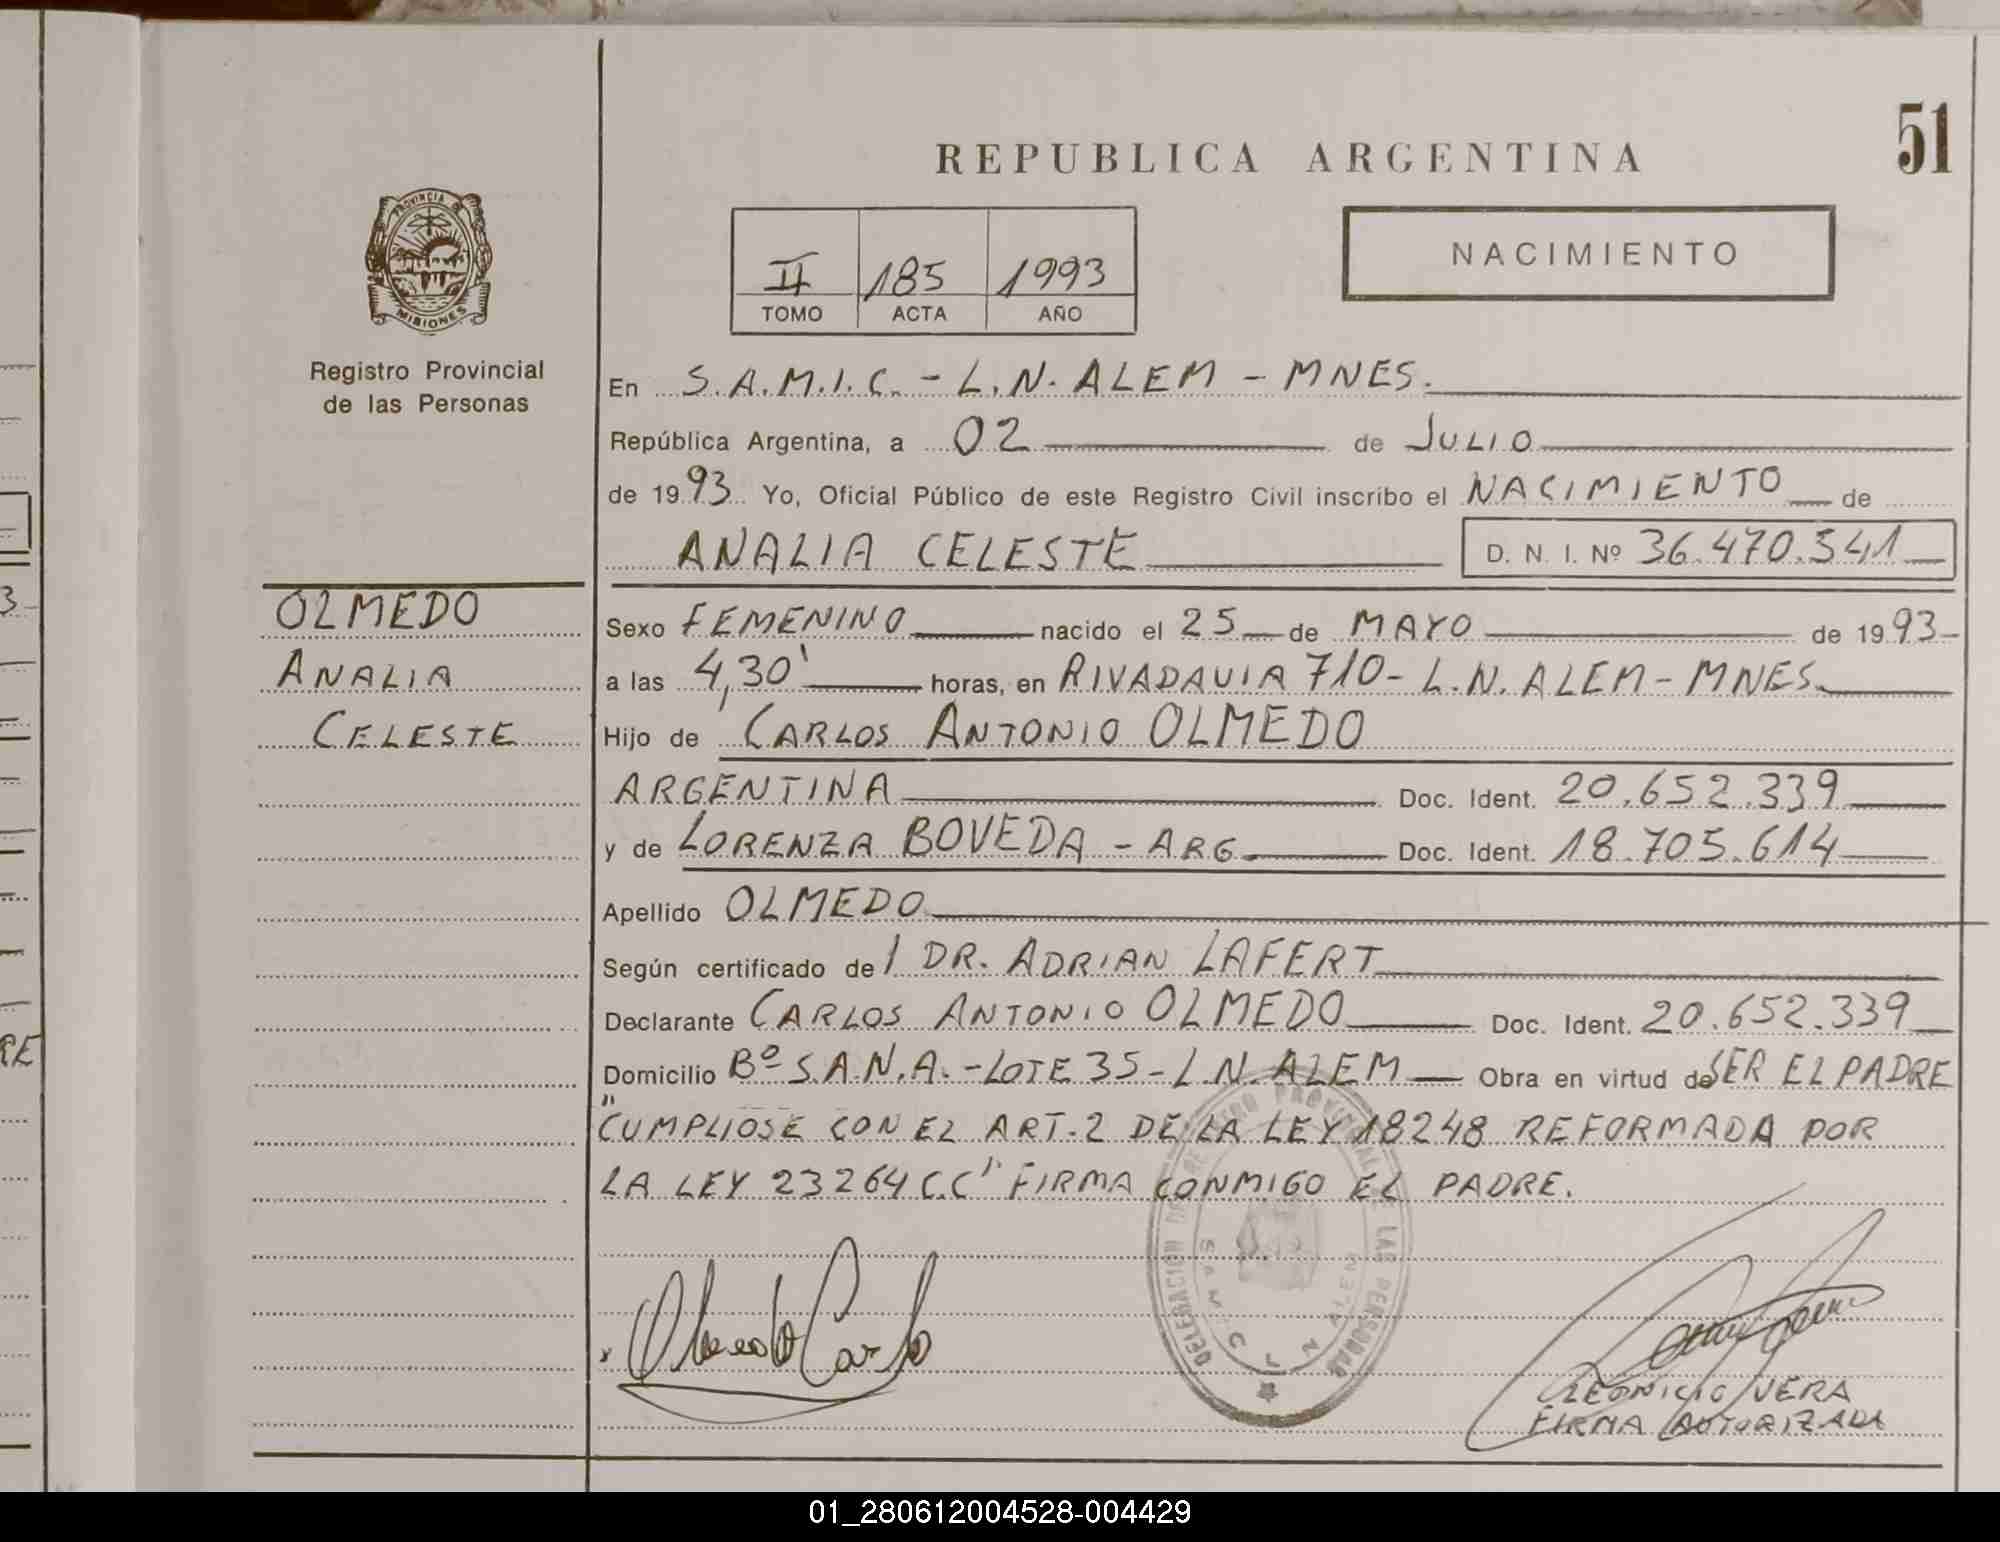 51
REPUBLICA ARGENTINA
PROVINCIA DE
MISIONES
Registro Provincial
de las Personas
II 185 1993
TOMO ACTA AÑO
NACIMIENTO
En S.A.M.I.C. - L.N. ALEM - MNES.
República Argentina, a 02 de JULIO
de 1993 Yo, Oficial Público de este Registro Civil inscribo el NACIMIENTO de
ANALIA CELESTE D. N. I. Nº 36.470.541
OLMEDO
ANALIA
CELESTE
Sexo FEMENINO nacido el 25 de MAYO de 1993
a las 4,30' horas, en RIVADAVIA 710 - L.N. ALEM - MNES.
Hijo de CARLOS ANTONIO OLMEDO
ARGENTINA Doc. Ident. 20.652.339
y de LORENZA BOVEDA - ARG. Doc. Ident. 18.705.614
Apellido OLMEDO
Según certificado del DR. ADRIAN LAFERT
Declarante CARLOS ANTONIO OLMEDO Doc. Ident. 20.652.339
Domicilio Bº S.A.N.A. - LOTE 35 - L.N. ALEM Obra en virtud de SER EL PADRE
"CUMPLIOSE CON EL ART. 2 DE LA LEY 18248 REFORMADA POR
LA LEY 23264 C.C" FIRMA CONMIGO EL PADRE.
DELEGACION DEL REGISTRO PROVINCIAL DE LAS PERSONAS
SAMIC L N ALEM
Olmedo Carlo
LEONICIO VERA
FIRMA AUTORIZADA
01_280612004528-004429